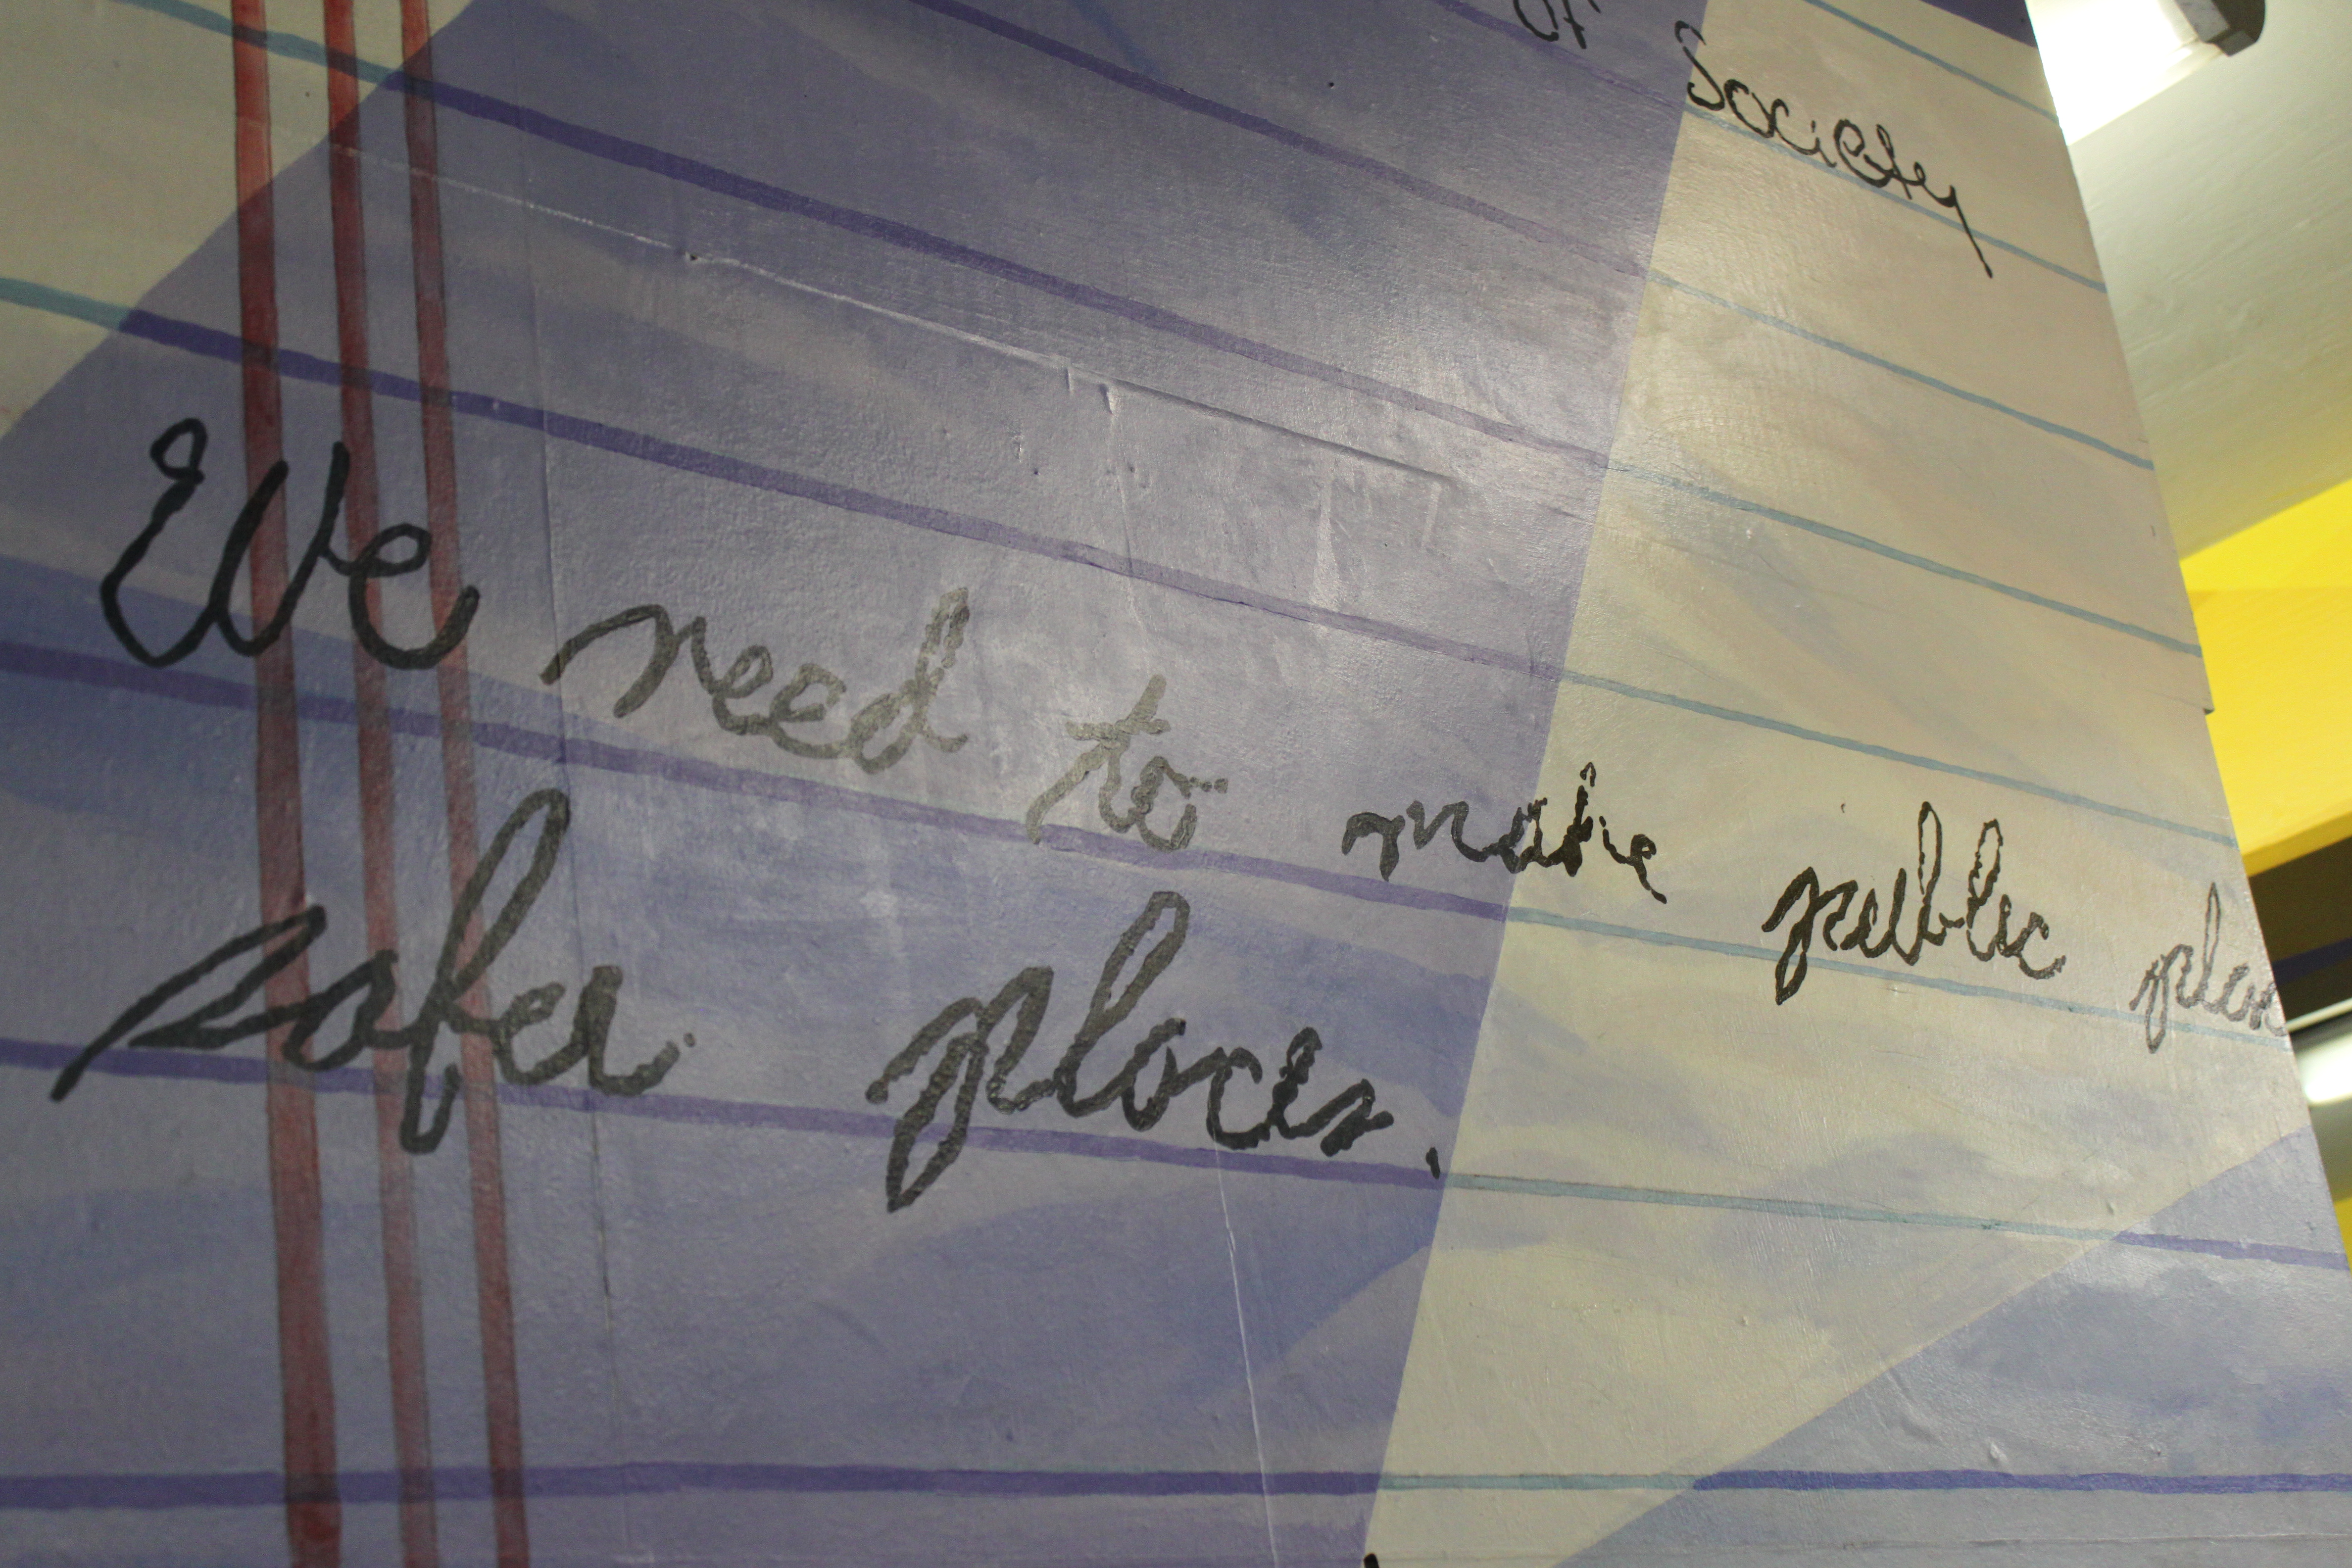 of Society
We need to make public
safer places.